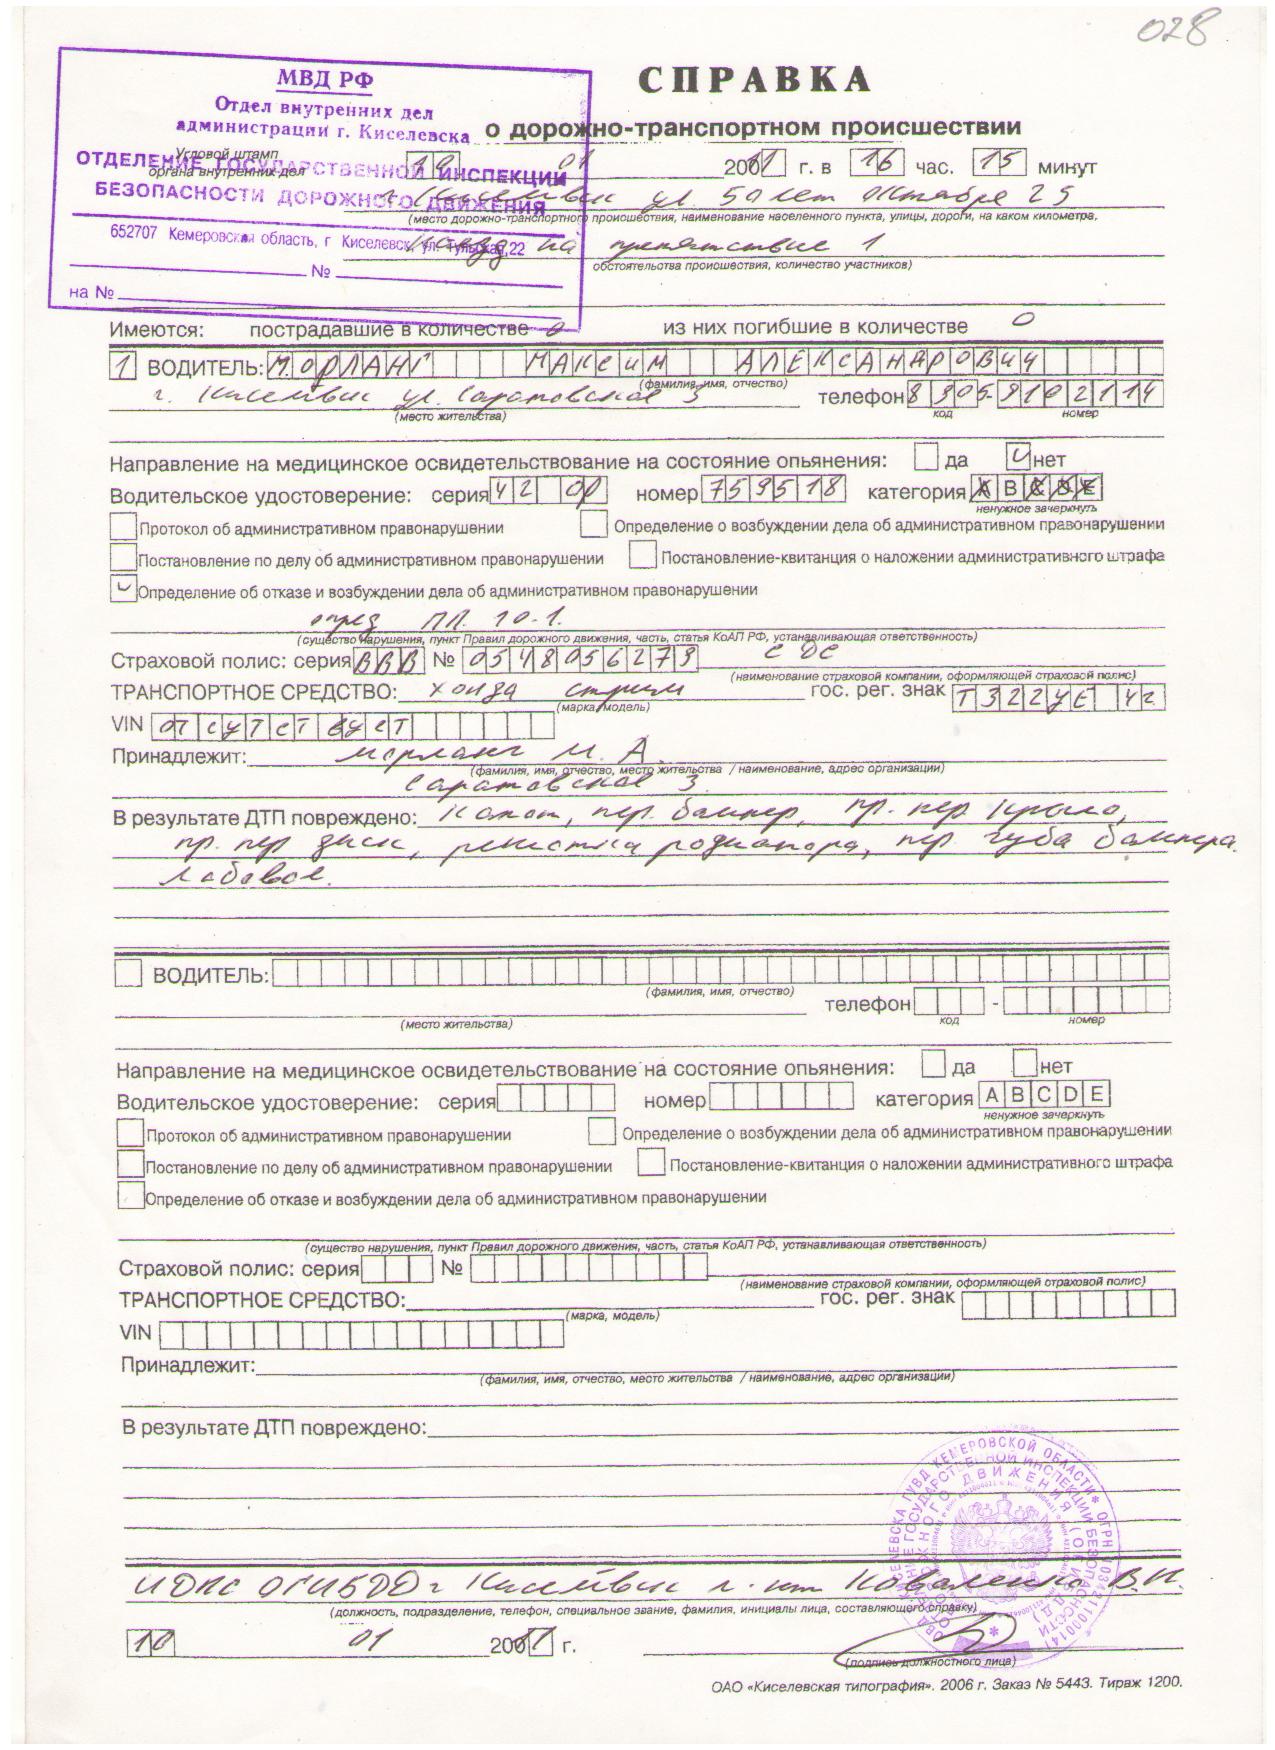 028
МВД РФ
Отдел внутренних дел
администрации г. Киселевска
ОТДЕЛЕНИЕ ГОСУДАРСТВЕННОЙ ИНСПЕКЦИИ
БЕЗОПАСНОСТИ ДОРОЖНОГО ДВИЖЕНИЯ
652707 Кемеровская область, г Киселевск, ул. Тульская,22
№
на №
СПРАВКА
о дорожно-транспортном происшествии
Угловой штамп
органа внутренних дел
10 01 2011 г. в 16 час. 15 минут
г. Киселёвск ул. 50 лет Октября 25
(место дорожно-транспортного происшествия, наименование населенного пункта, улицы, дороги, на каком километре,
наезд на препятствие 1
обстоятельства происшествия, количество участников)
Имеются: пострадавшие в количестве 0 из них погибшие в количестве 0
1 ВОДИТЕЛЬ: МОРЛАНГ МАКСИМ АЛЕКСАНДРОВИЧ
(фамилия, имя, отчество)
г. Киселёвск ул. Саратовская 3 телефон 8 905-9102114
(место жительства) код номер
Направление на медицинское освидетельствование на состояние опьянения: да нет
Водительское удостоверение: серия 42 ОР номер 759518 категория A B C D E
ненужное зачеркнуть
Протокол об административном правонарушении Определение о возбуждении дела об административном правонарушении
Постановление по делу об административном правонарушении Постановление-квитанция о наложении административного штрафа
Определение об отказе и возбуждении дела об административном правонарушении
опред ПП. 10.1.
(существо нарушения, пункт Правил дорожного движения, часть, статья КоАП РФ, устанавливающая ответственность)
Страховой полис: серия ВВВ № 0548056273 СДС
(наименование страховой компании, оформляющей страховой полис)
ТРАНСПОРТНОЕ СРЕДСТВО: Хонда стрим гос. рег. знак Т322УЕ 42
(марка, модель)
VIN ОТСУТСТВУЕТ
Принадлежит: Морланг М. А.
(фамилия, имя, отчество, место жительства / наименование, адрес организации)
Саратовская 3
В результате ДТП повреждено: Капот, пер. бампер, пр. пер крыло,
пр. пер диск, решетка радиатора, пер. губа бампера.
Лабовое.
ВОДИТЕЛЬ:
(фамилия, имя, отчество)
телефон -
(место жительства) код номер
Направление на медицинское освидетельствование на состояние опьянения: да нет
Водительское удостоверение: серия номер категория A B C D E
ненужное зачеркнуть
Протокол об административном правонарушении Определение о возбуждении дела об административном правонарушении
Постановление по делу об административном правонарушении Постановление-квитанция о наложении административного штрафа
Определение об отказе и возбуждении дела об административном правонарушении
(существо нарушения, пункт Правил дорожного движения, часть, статья КоАП РФ, устанавливающая ответственность)
Страховой полис: серия №
(наименование страховой компании, оформляющей страховой полис)
ТРАНСПОРТНОЕ СРЕДСТВО: гос. рег. знак
(марка, модель)
VIN
Принадлежит:
(фамилия, имя, отчество, место жительства / наименование, адрес организации)
В результате ДТП повреждено:
ИДПС ОГИБДД г Киселёвск л-нт Коваленко В.Н.
(должность, подразделение, телефон, специальное звание, фамилия, инициалы лица, составляющего справку)
10 01 2011 г.
(подпись должностного лица)
ОАО «Киселевская типография». 2006 г. Заказ № 5443. Тираж 1200.